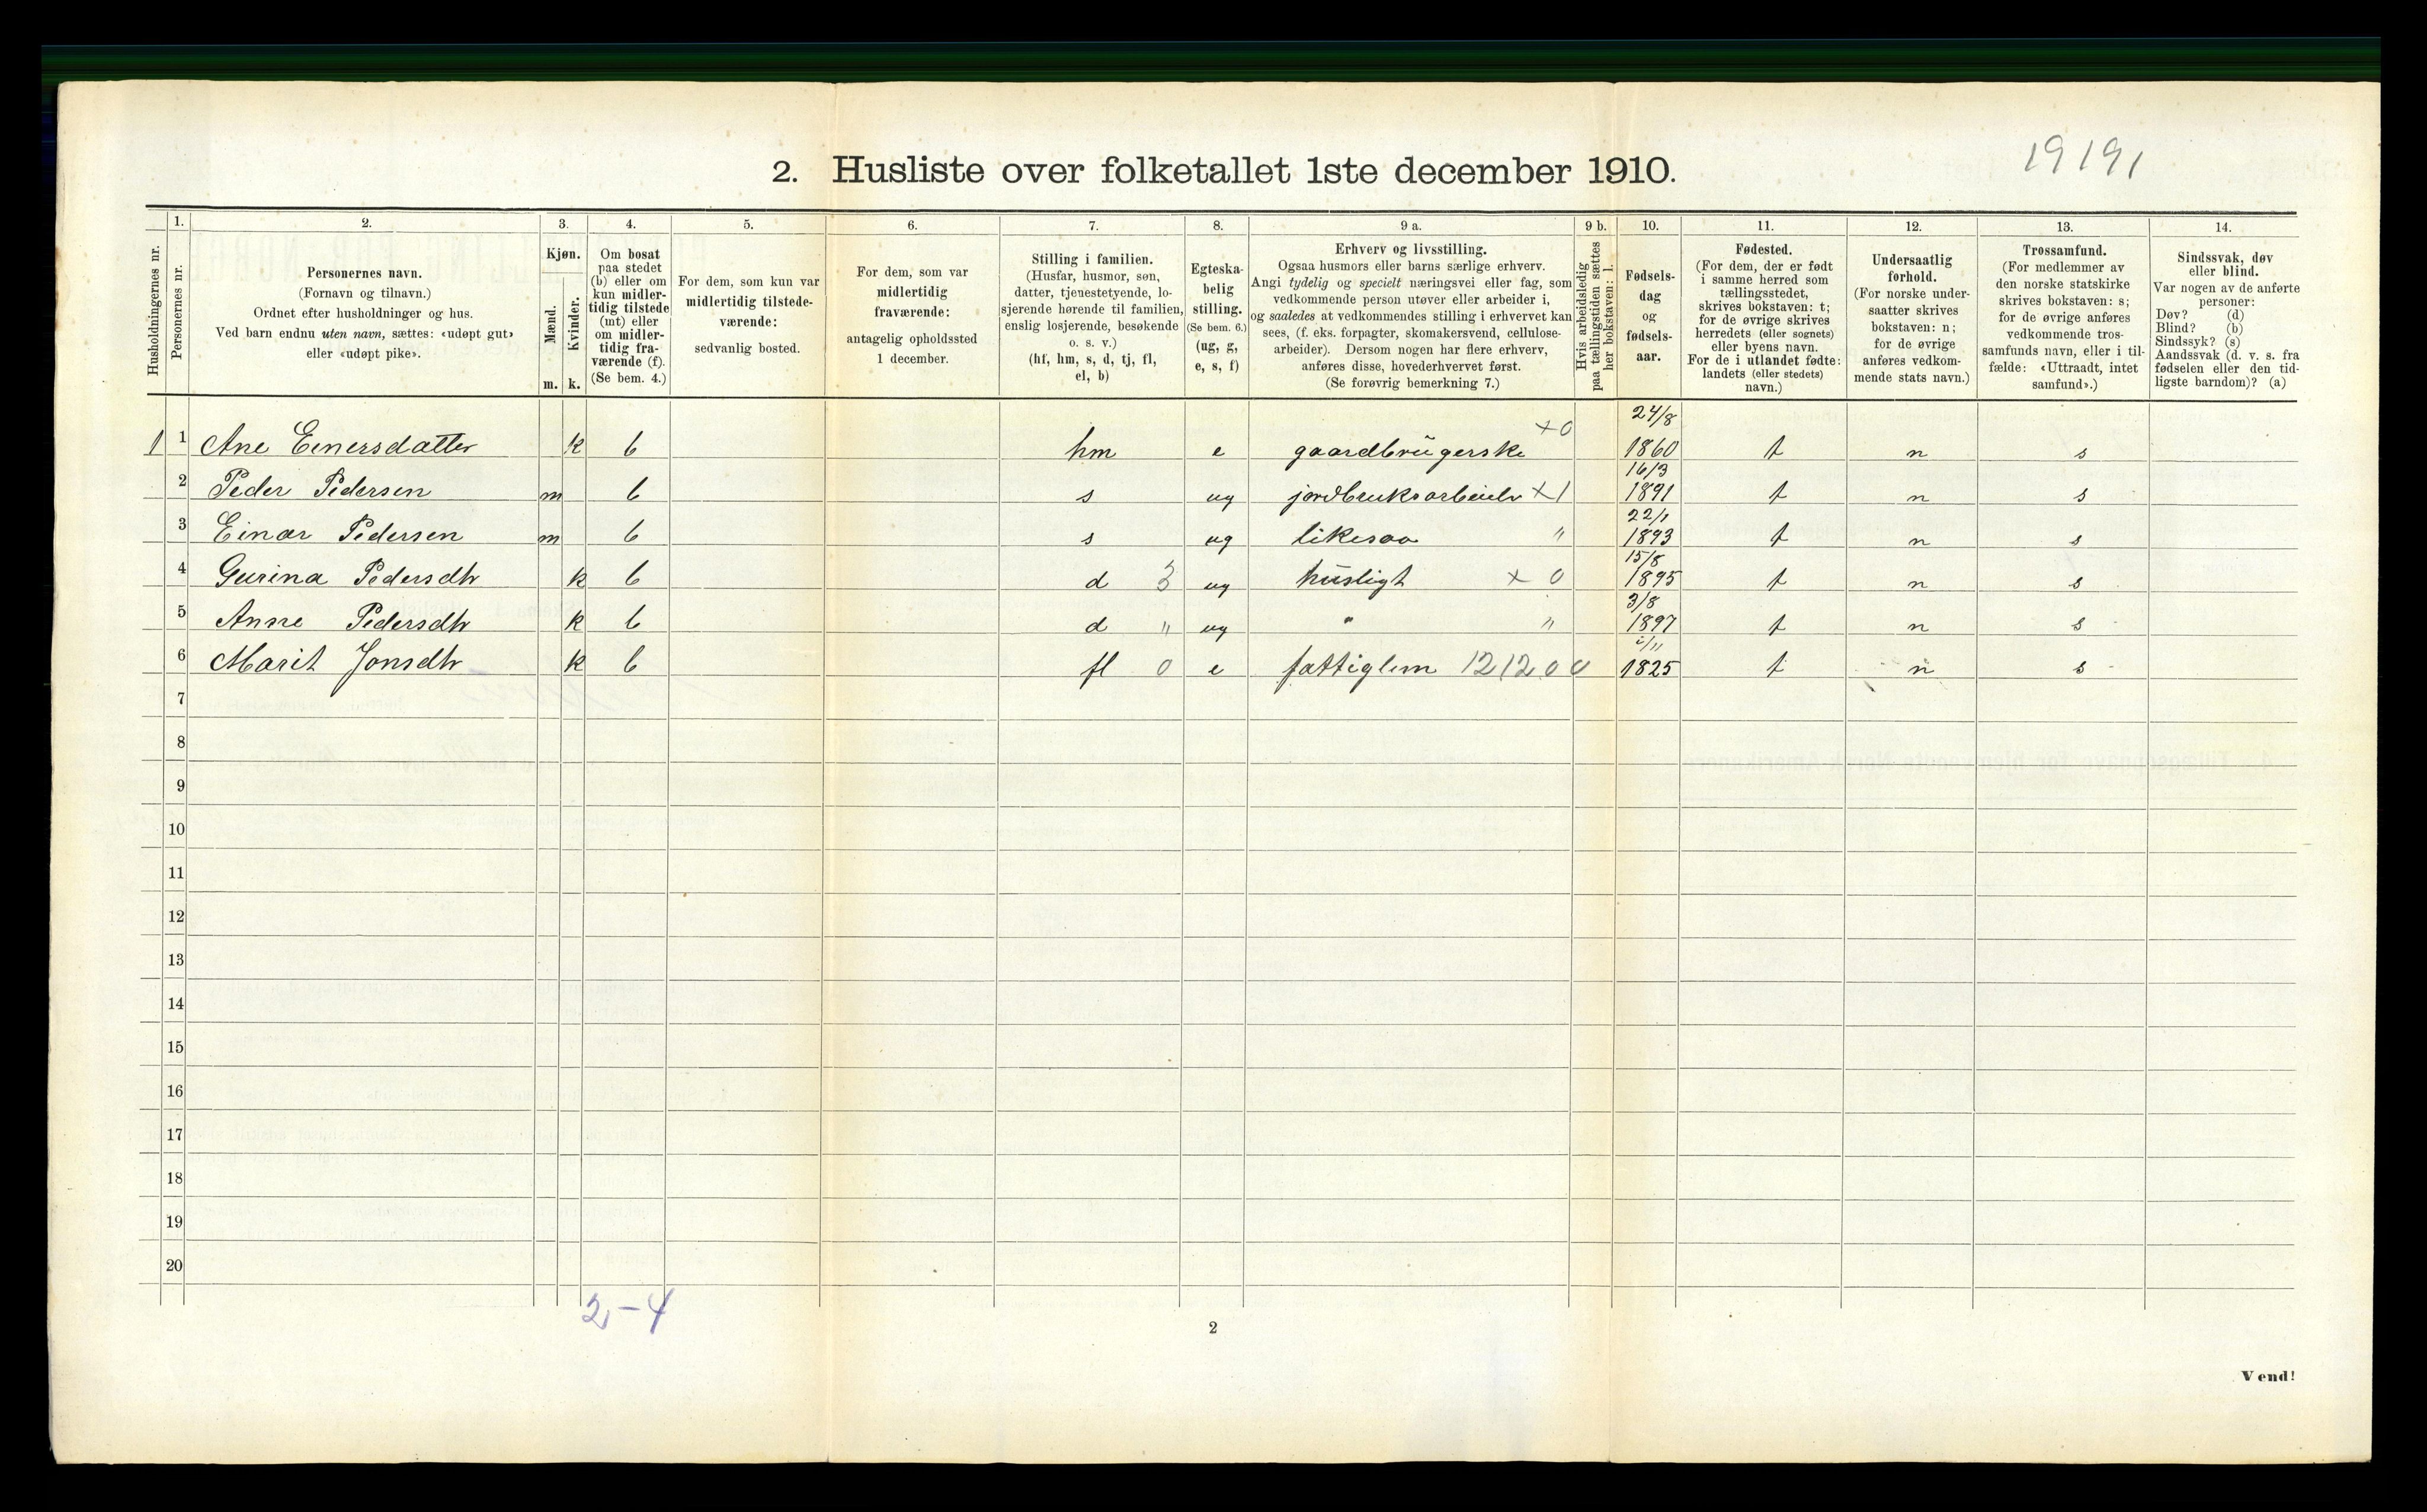 19191
2. Husliste over folketallet 1ste december 1910.
Husholdningernes nr.
1.
Personernes nr.
2.
Personernes navn.
(Fornavn og tilnavn.)
Ordnet efter husholdninger og hus.
Ved barn endnu uten navn, sættes: «udøpt gut»
eller «udøpt pike».
3.
Kjøn.
Mænd.
Kvinder.
m. k.
4.
Om bosat
paa stedet
(b) eller om
kun midler-
tidig tilstede
(mt) eller
om midler-
tidig fra-
værende (f).
(Se bem. 4.)
5.
For dem, som kun var
midlertidig tilstede-
værende:
sedvanlig bosted.
6.
For dem, som var
midlertidig
fraværende:
antagelig opholdssted
1 december.
7.
Stilling i familien.
(Husfar, husmor, søn,
datter, tjenestetyende, lo-
sjerende hørende til familien,
enslig losjerende, besøkende
o. s. v.)
(hf, hm, s, d, tj, fl,
el, b)
8.
Egteska-
belig
stilling.
(Se bem. 6.)
(ug, g,
e, s, f)
9 a.
Erhverv og livsstilling.
Ogsaa husmors eller barns særlige erhverv.
Angi tydelig og specielt næringsvei eller fag, som
vedkommende person utøver eller arbeider i,
og saaledes at vedkommendes stilling i erhvervet kan
sees, (f. eks. forpagter, skomakersvend, cellulose-
arbeider). Dersom nogen har flere erhverv,
anføres disse, hovederhvervet først.
(Se forøvrig bemerkning 7.)
9 b.
Hvis arbeidsledig
paa tællingstiden sættes
her bokstaven: l.
10.
Fødsels-
dag
og
fødsels-
aar.
11.
Fødested.
(For dem, der er født
i samme herred som
tællingsstedet,
skrives bokstaven: t;
for de øvrige skrives
herredets (eller sognets)
eller byens navn.
For de i utlandet fødte:
landets (eller stedets)
navn.)
12.
Undersaatlig
forhold.
(For norske under-
saatter skrives
bokstaven: n;
for de øvrige
anføres vedkom-
mende stats navn.)
13.
Trossamfund.
(For medlemmer av
den norske statskirke
skrives bokstaven: s;
for de øvrige anføres
vedkommende tros-
samfunds navn, eller i til-
fælde: «Uttraadt, intet
samfund».)
14.
Sindssvak, døv
eller blind.
Var nogen av de anførte
personer:
Døv? (d)
Blind? (b)
Sindssyk? (s)
Aandssvak (d. v. s. fra
fødselen eller den tid-
ligste barndom)? (a)
1 1 Ane Einersdatter k b hm e gaardbrügerske +0 24/8 1860 t n s
2 Peder Pedersen m b s ug jordbruksarbeider +1 16/3 1891 t n s
3 Einar Pedersen m b s ug likesaa " 22/1 1893 t n s
4 Gurina Pedersdtr k b d 3 ug hüsligt + 0 15/8 1895 t n s
5 Anne Pedersdtr k b d " ug " " 3/8 1897 t n s
6 Marit Jonsdtr k b fl 0 e fattiglem 121200 1825 t n s
7
8
9
10
11
12
13
14
15
16
17
18
19
20
2-4
2
Vend!